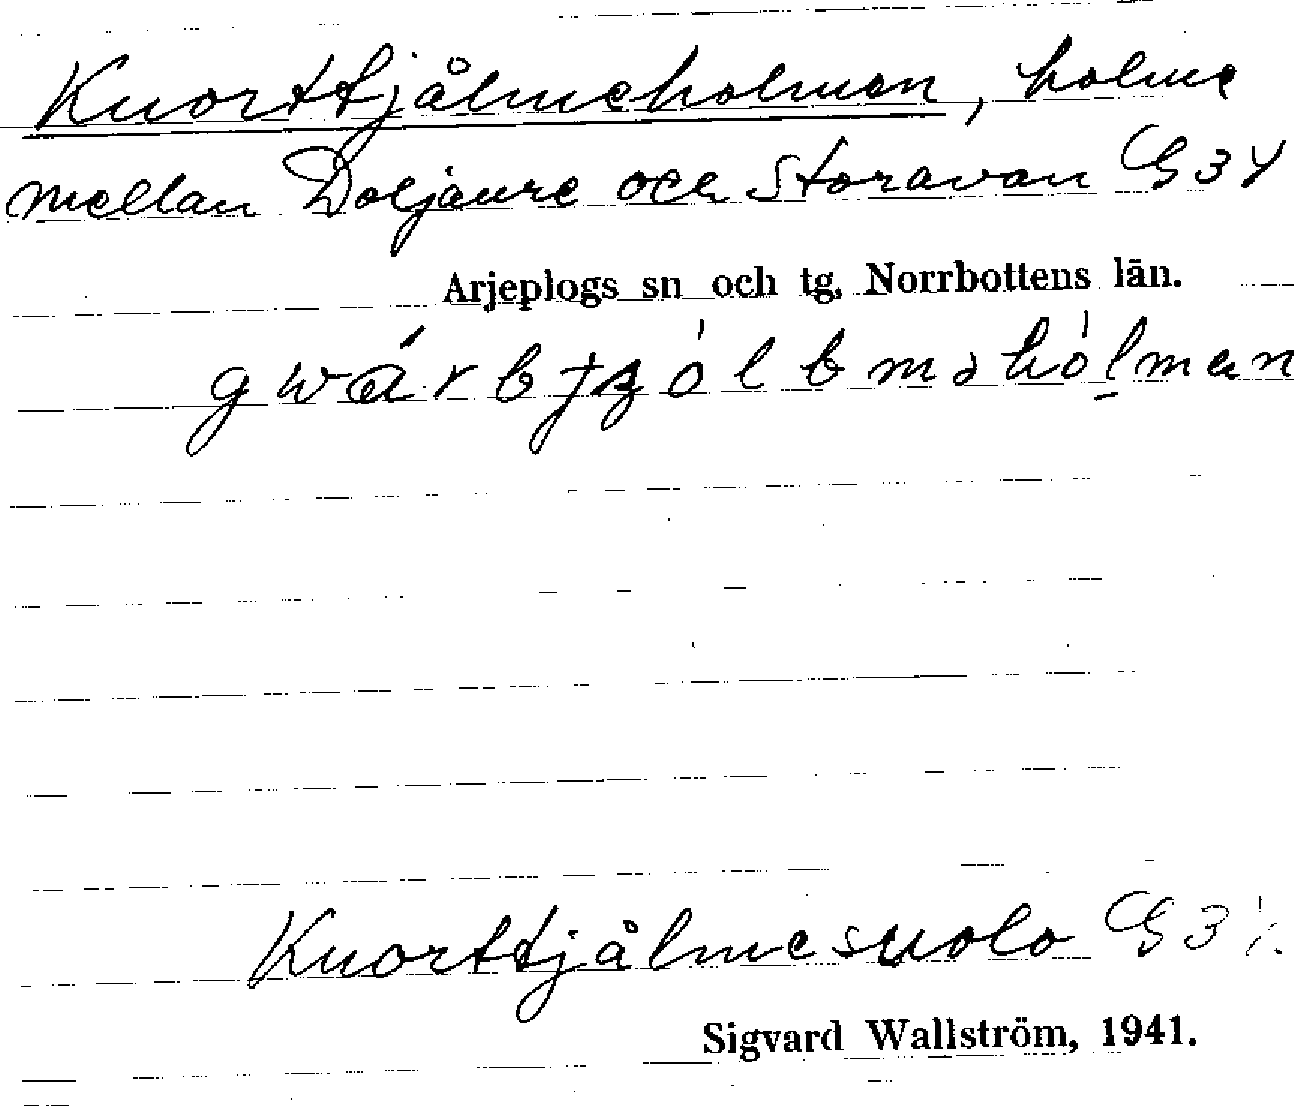 Kuorttjålmeholmen, holme
mellan Doljaure och Storavan G34
Arjeplogs sn och tg, Norrbottens län.
Kuorttjålmesuolo
Sigvard Wallström, 1941.